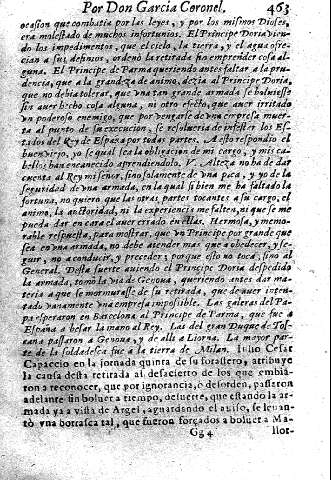 Por Don Garcia Coronel. 463
ocasion que combatia por las leyes, y por los mismos Dioses,
era molestado de muchos infortunios. El Principe Doria vien-
do los impedimentos, que el cielo, la tierra, y el agua ofre-
cian a sus desinios, ordenó la retirada sin emprender cosa al-
guna. El Principe de Parma queriendo antes faltar a la pru-
dencia, que a la grandeza de animo, dezia al Principe Doria,
que no debia tolerar, que vna tan grande armada se boluiesse
sin auer hecho cosa alguna, ni otro efecto, que auer irritado
vn poderoso enemigo, que por vengarse de vna empresa muer-
ta al punto de su execucion, se resolueria de infestar los Es-
tados del Rey de España por todas partes. A esto respondio el
buen viejo, yo se qual sea la obligacion de mi cargo, y mis ca-
bellos han encanecido aprendiendolo. V. Alteza no ha de dar
cuenta al Rey mi señor, sino solamente de vna pica, y yo de la
seguridad de vna armada, en la qual si bien me ha faltado la
fortuna, no quiero que las otras partes tocantes a su cargo, el
animo, la autoridad, ni la experiencia me falten, ni que se me
pueda dar en cara el auer errado en ellas. Hermosa, y memo-
rable respuesta, para mostrar, que vn Principe por grande que
sea en vna armada, no debe atender mas que a obedecer, y se-
guir, no a conducir, y preceder; porque esto no toca, sino al
General. Desta suerte auiendo el Principe Doria despedido
la armada, tomò la via de Genoua, queriendo antes dar ma-
teria a que se murmurasse de su retirada, que de auer inten-
tado vanamente vna empresa impossible. Las galeras del Pa-
pa esperaron en Barcelona al Principe de Parma, que fue a
España a besar la mano al Rey. Las del gran Duque de Tos-
cana passaron a Genoua, y de alli a Liorna. La mayor par-
te de la soldadesca fue a la tierra de Milan. Iulio Cesar
Capaccio en la jornada quinta de su forastero, atribuye
la causa desta retirada al desacierto de los que embia-
ron a reconocer, que por ignorancia, ò desorden, passaron
adelante sin boluer a tiempo, desuerte, que estando la ar-
mada ya a vista de Argel, aguardando el auiso, se leuan-
tò vna borrasca tal, que fueron forçados a boluer a Ma-
Gg 4 llor-